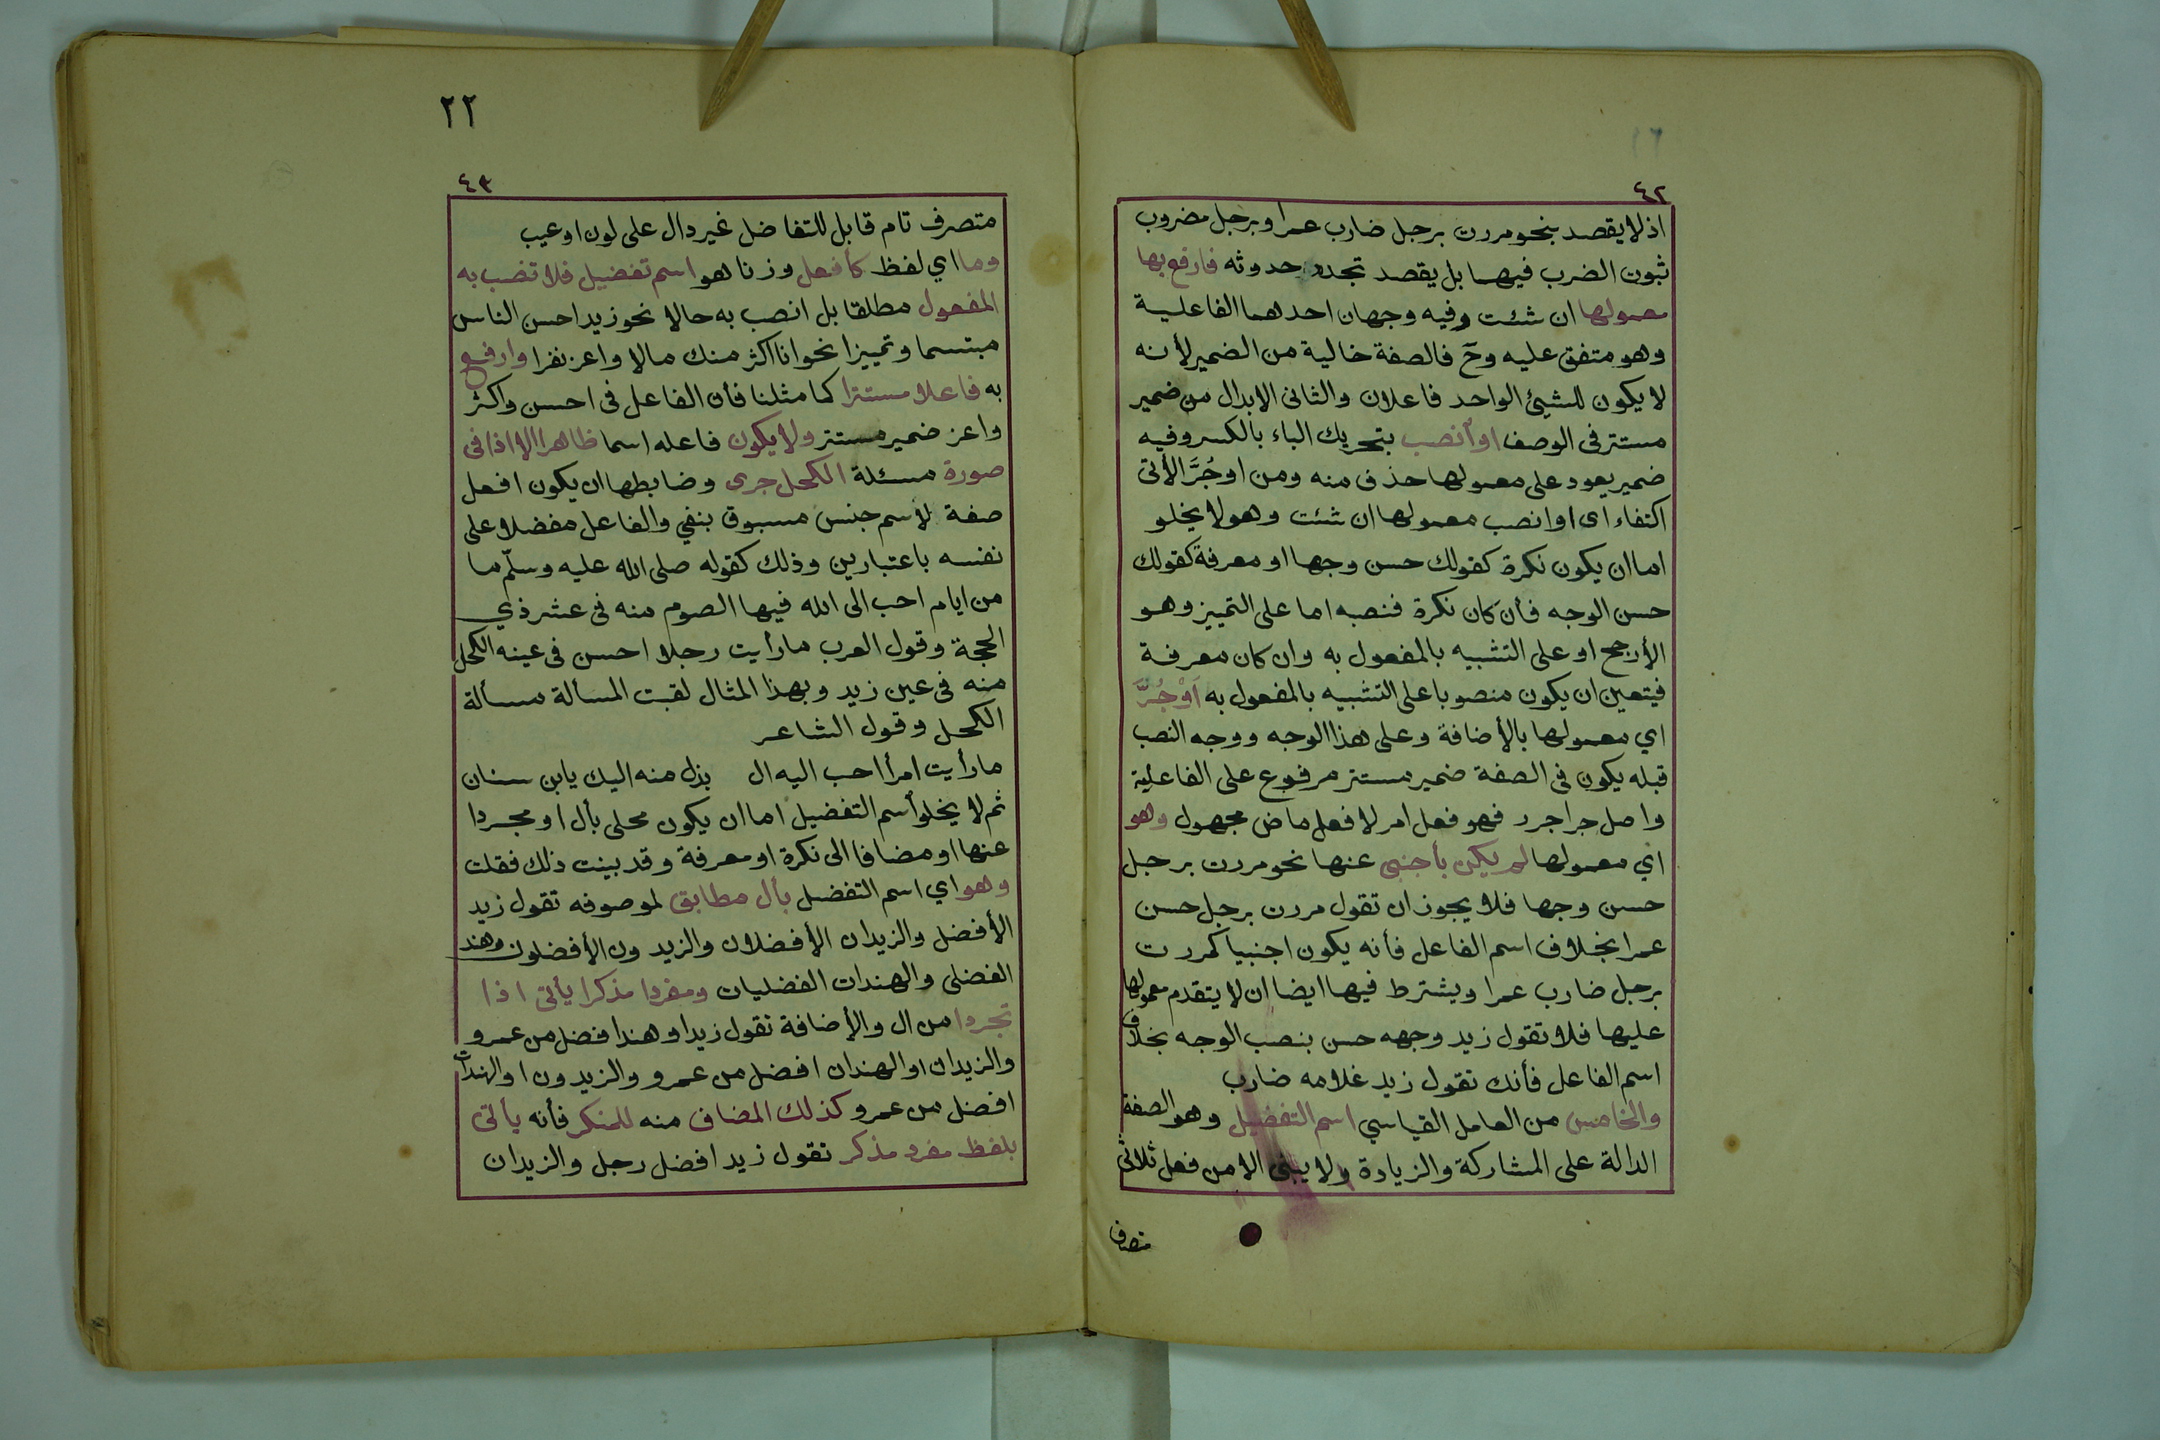 ٤٢
اذ لا يقصد بنحو مررت برجل ضارب عمرا وبرجل مضروب
ثبوت الضرب فيهما بل يقصد تجدد وحدوثه فارفع بها
معمولها ان شئت وفيه وجهان احدهما الفاعلية
وهو متفق عليه وح فالصفة خالية من الضمير لأنه
لا يكون للشيئ الواحد فاعلان والثانى الابدال من ضمير
مستتر فى الوصف او أنصب بتحريك الباء بالكسر وفيه
ضمير يعود على معمولها حذف منه ومن او جُرَّ الأتى
اكتفاء اى او انصب معمولها ان شئت وهو لا يخلو
اما ان يكون نكرة كقولك حسن وجها او معرفة كقولك
حسن الوجه فأن كان نكرة فنصبه اما على التمييز وهو
الأرجح او على التشبيه بالمفعول به وان كان معرفة
فيتعين ان يكون منصوبا على التشبيه بالمفعول به اَوْ جُرَّ
اي معمولها بالأضافة وعلى هذا الوجه ووجه النصب
قبله يكون فى الصفة ضمير مستتر مرفوع على الفاعلية
واصل جر اجرر فهو فعل امر لا فعل ماض مجهول وهو
اي معمولها لم يكن بأجنبى عنها نحو مررت برجل
حسن وجها فلا يجوز ان تقول مررت برجل حسن
عمرا بخلاف اسم الفاعل فأنه يكون اجنبيا كمررت
برجل ضارب عمرا ويشترط فيها ايضا ان لا يتقدم معمولها
عليها فلا تقول زيد وجهه حسن بنصب الوجه بخلاف
اسم الفاعل فأنك تقول زيد غلامه ضارب
والخامس من العامل القياسي اسم التفضيل وهو الصفة
الدالة على المشاركة والزيادة ولا يبنى الا من فعل ثلاثى
٢٢
٤٣
متصرف تام قابل للتفاضل غير دال على لون او عيب
وما اي لفظ كأفعل وزنا هو اسم تفضيل فلا تنصب به
المفعول مطلقا بل انصب به حالا نحو زيد احسن الناس
مبتسما وتمييزا نحو انا اكثر منك مالا واعز نفرا وارفع
به فاعلا مستترا كما مثلنا فأن الفاعل فى احسن واكثر
واعز ضمير مستتر ولا يكون فاعله اسما ظاهرا الا اذا فى
صورة مسئلة الكحل جرى وضابطها ان يكون افعل
صفة لأسم جنس مسبوق بنفي والفاعل مفضلا على
نفسه باعتبارين وذلك كقوله صلى الله عليه وسلّم ما
من ايام احب الى الله فيها الصوم منه فى عشر ذي
الحجة وقول العرب ما رأيت رجلا احسن فى عينه الكحل
منه فى عين زيد وبهذا المثال لقبت المسألة مسألة
الكحل وقول الشاعر
ما رأيت امرأ احب اليه ال بذل منه اليك يا بن سنان
ثم لا يخلو أسم التفضيل اما ان يكون محلى بأل او مجردا
عنها او مضافا الى نكرة او معرفة وقد بينت ذلك فقلت
وهو اي اسم التفضل بأل مطابق لموصوفه تقول زيد
الأفضل والزيدان الأفضلان والزيدون الأفضلون وهند
الفضلى والهندات الفضليات ومفردا مذكرا يأتى اذا
تجردا من ال والأضافة تقول زيد او هند افضل من عمرو
والزيدان او الهندان افضل من عمرو والزيدون او الهندات
افضل من عمرو كذلك المضاف منه للمنكر فأنه يأتى
بلفظ مفرد مذكر تقول زيد افضل رجل والزيدان